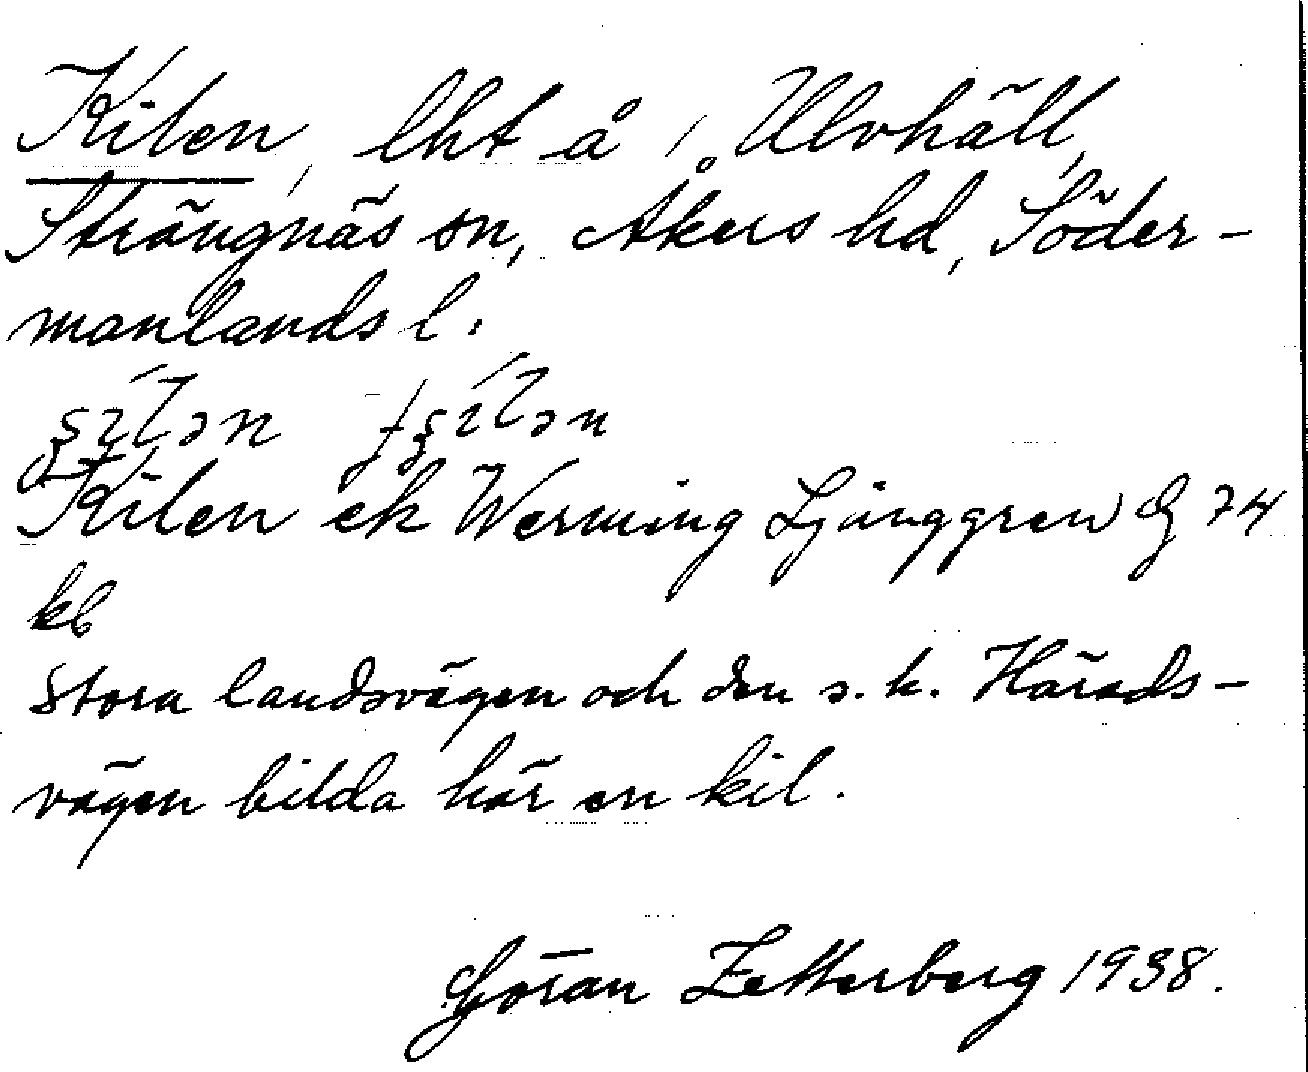 Kilen, lht å 1 Ulvhäll,
Strängnäs sn, Åkers hd, Söder-
manlands l.
Kilen ek Werming Ljunggren G 74
kb
Stora landsvägen och den s.k. Härads-
vägen bilda här en kil.
Göran Zetterberg 1938.